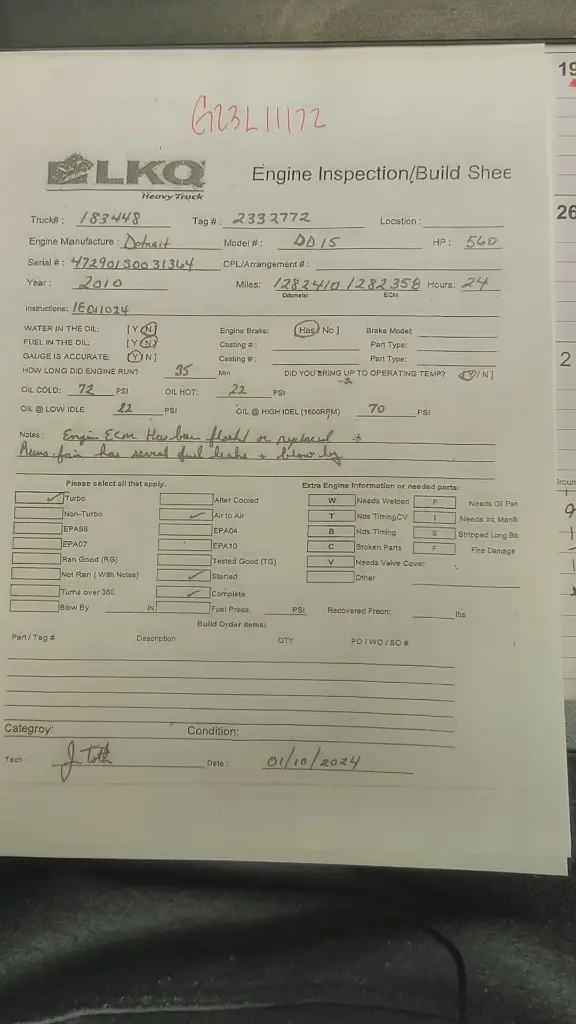 G23L11172
LKQ Heavy Truck
Engine Inspection/Build Shee
Truck#: 183448 Tag #: 2332772 Location:
Engine Manufacture: Detroit Model #: DD15 HP: 560
Serial #: 472901S0031364 CPL/Arrangement #:
Year: 2010 Miles: 1282410 1282358 Hours: 24
Odometer ECM
Instructions: 1E011024
WATER IN THE OIL: [Y N] Engine Brake: [Has No] Brake Model:
FUEL IN THE OIL: [Y N] Casting #: Part Type:
GAUGE IS ACCURATE: [Y N] Casting #: Part Type:
HOW LONG DID ENGINE RUN? 35 Min DID YOU BRING UP TO OPERATING TEMP? [Y/N]
OIL COLD: 72 PSI OIL HOT: 22 PSI
OIL @ LOW IDLE 22 PSI OIL @ HIGH IDEL (1600RPM) 70 PSI
Notes: Engin Ecm Has ben flash or replacd +
Runs fair has sevral fuel leaks + blow by
Please select all that apply. Extra Engine Information or needed parts:
Turbo After Cooled W Needs Welded P Needs Oil Pan
Non-Turbo Air to Air T Nds TimingCV I Needs Int. Manifi
EPA98 EPA04 B Nds Timing S Stripped Long Blc
EPA07 EPA10 C Broken Parts F Fire Damage
Ran Good (RG) Tested Good (TG) V Needs Valve Cover
Not Ran (With Notes) Started Other
Turns over 360 Complete
Blow By IN Fuel Press. PSI Recovered Freon: lbs
Build Order Items:
Part / Tag # Description QTY PO / WO / SO #
Categroy: Condition:
Tech: J Toth Date: 01/10/2024
19
26
2